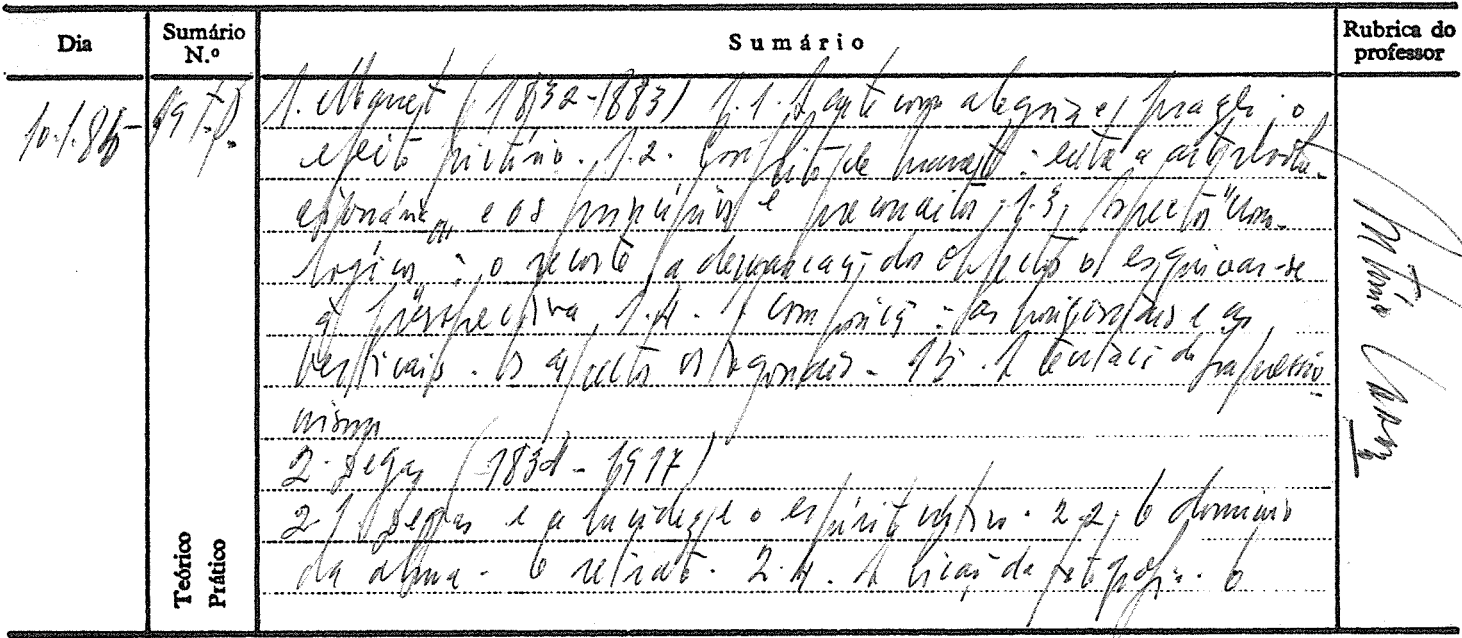 Dia
Sumário N.º
Sumário
Rubrica do professor
10.1.85
19 T.P.
1. Manet (1832-1883) 1.1. A arte como alegria e prazer: o
efeito pictório. 1.2. Conflito de Manet: entre a arte
e os princípios e preconceitos. 1.3. Aspectos
lógicos: o recorte, a demarcação dos objectos, o esquivar-se
à perspectiva. 1.4. A composição: as horizontais e as
verticais. Os aspectos ortogonais. 1.5. A tentação do impressio
nismo
2. Degas (1834-1917)
2.1. Degas e a lucidez e o espírito crítico. 2.2. O domínio
da alma. O retrato. 2.4. A lição da fotografia. O
Teórico
Prático